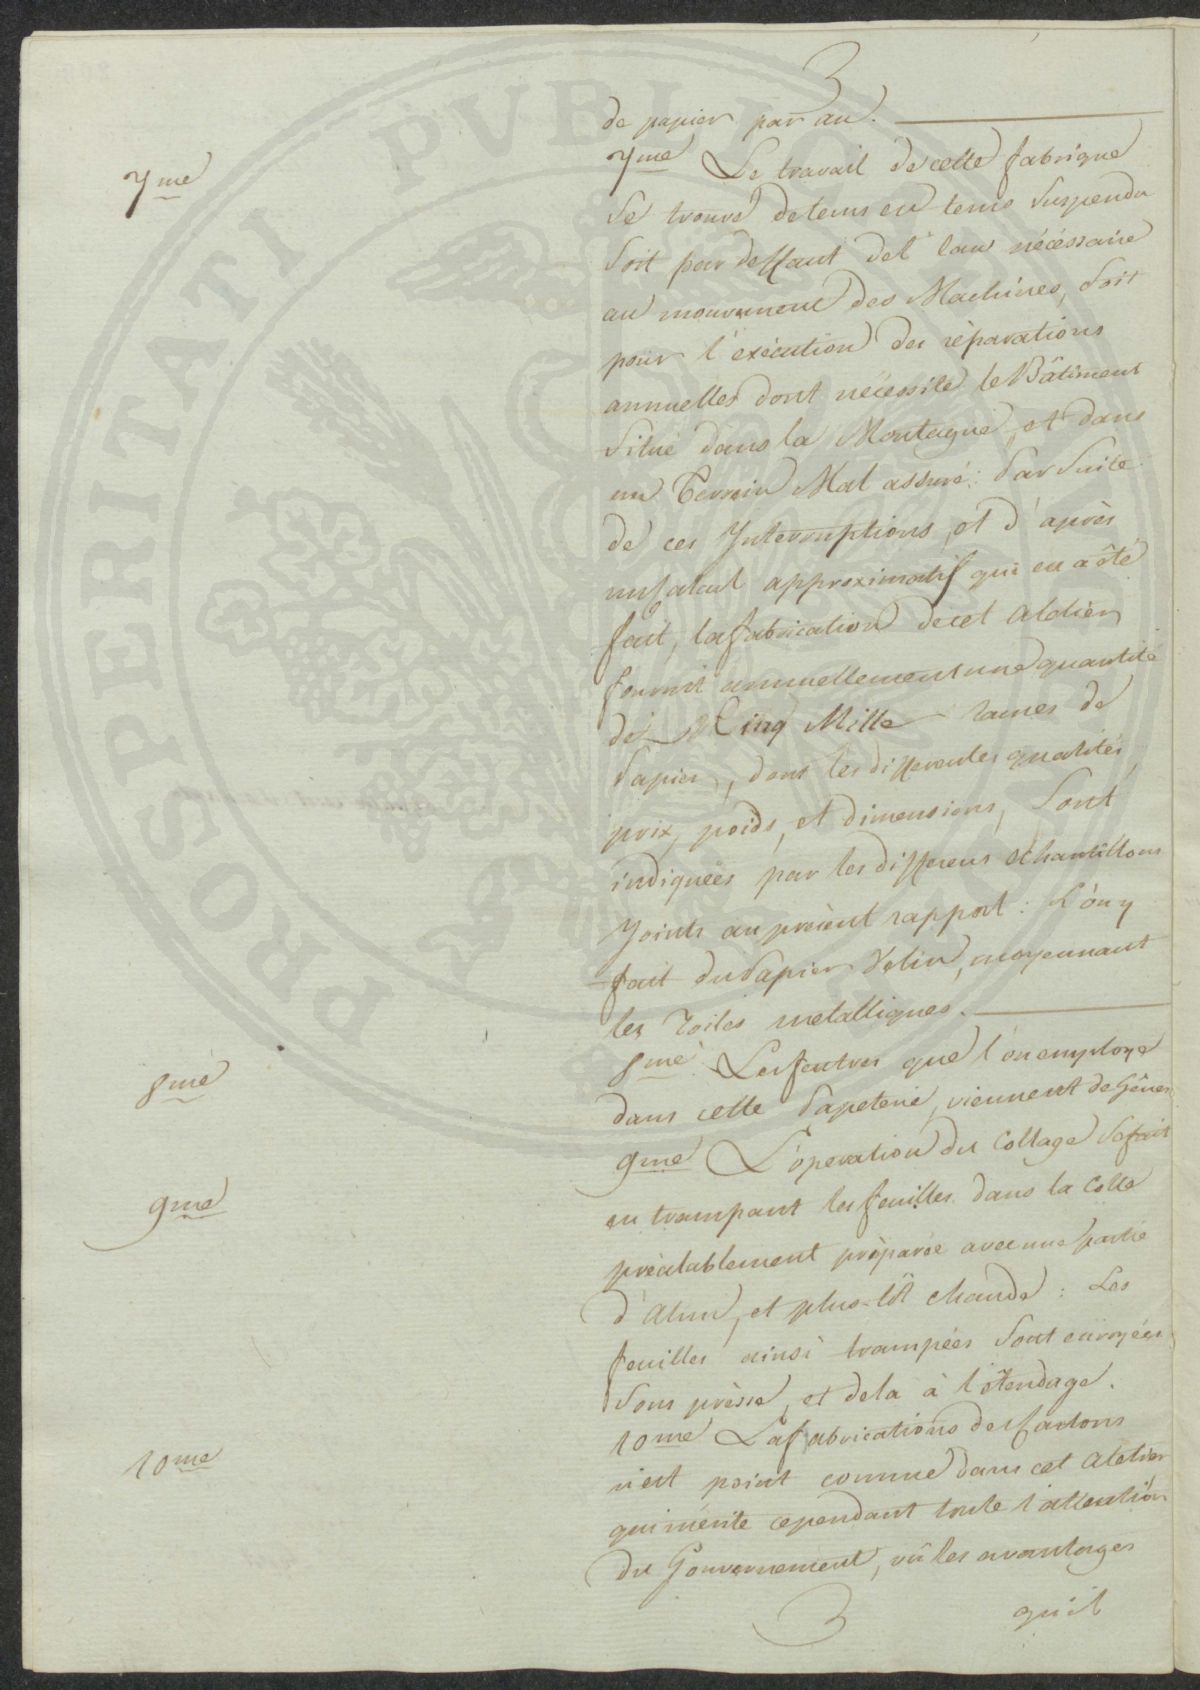 3
de papier par an.
7me
7me Le travail de cette fabrique
se trouve de tems en tems suspendu
soit par deffaut de l'eau nécéssaire
au mouvement des Machines, soit
pour l'exécution des réparations
annuelles dont nécessite le Bâtiment
situé dans la Montagne, et dans
un Terrein Mal assuré: Par suite
de ces Interruptions, et d'après
un Calcul approximatif qui en a été
fait, la fabrication de cet Atelier
fournit annuellement une quantité
de Cinq Mille rames de
Papier, dont les differentes qualités,
prix, poids, et dimensions, sont
indiquées par les differens échantillons
Joints au présent rapport: L'on y
fait du Papier Velin, moyennant
les Toiles metalliques.
8me
8me Les feutres que l'on employe
dans cette Papeterie, viennent de Gênes
9me
9me L'opération du Collage se fait
en trampant les feuilles dans la Colle
préalablement préparée avec une partie
d'Alun, et plus-tôt chaude: Les
feuilles ainsi trampées sont envoyées
sous présse, et de la à l'étendage.
10me
10me La fabrications des Cartons
n'est point connue dans cet Atelier
qui mérite cependant toute l'attention
du Gouvernement, vû les avantages
3
qu'il
PROSPERITATI PVBLI